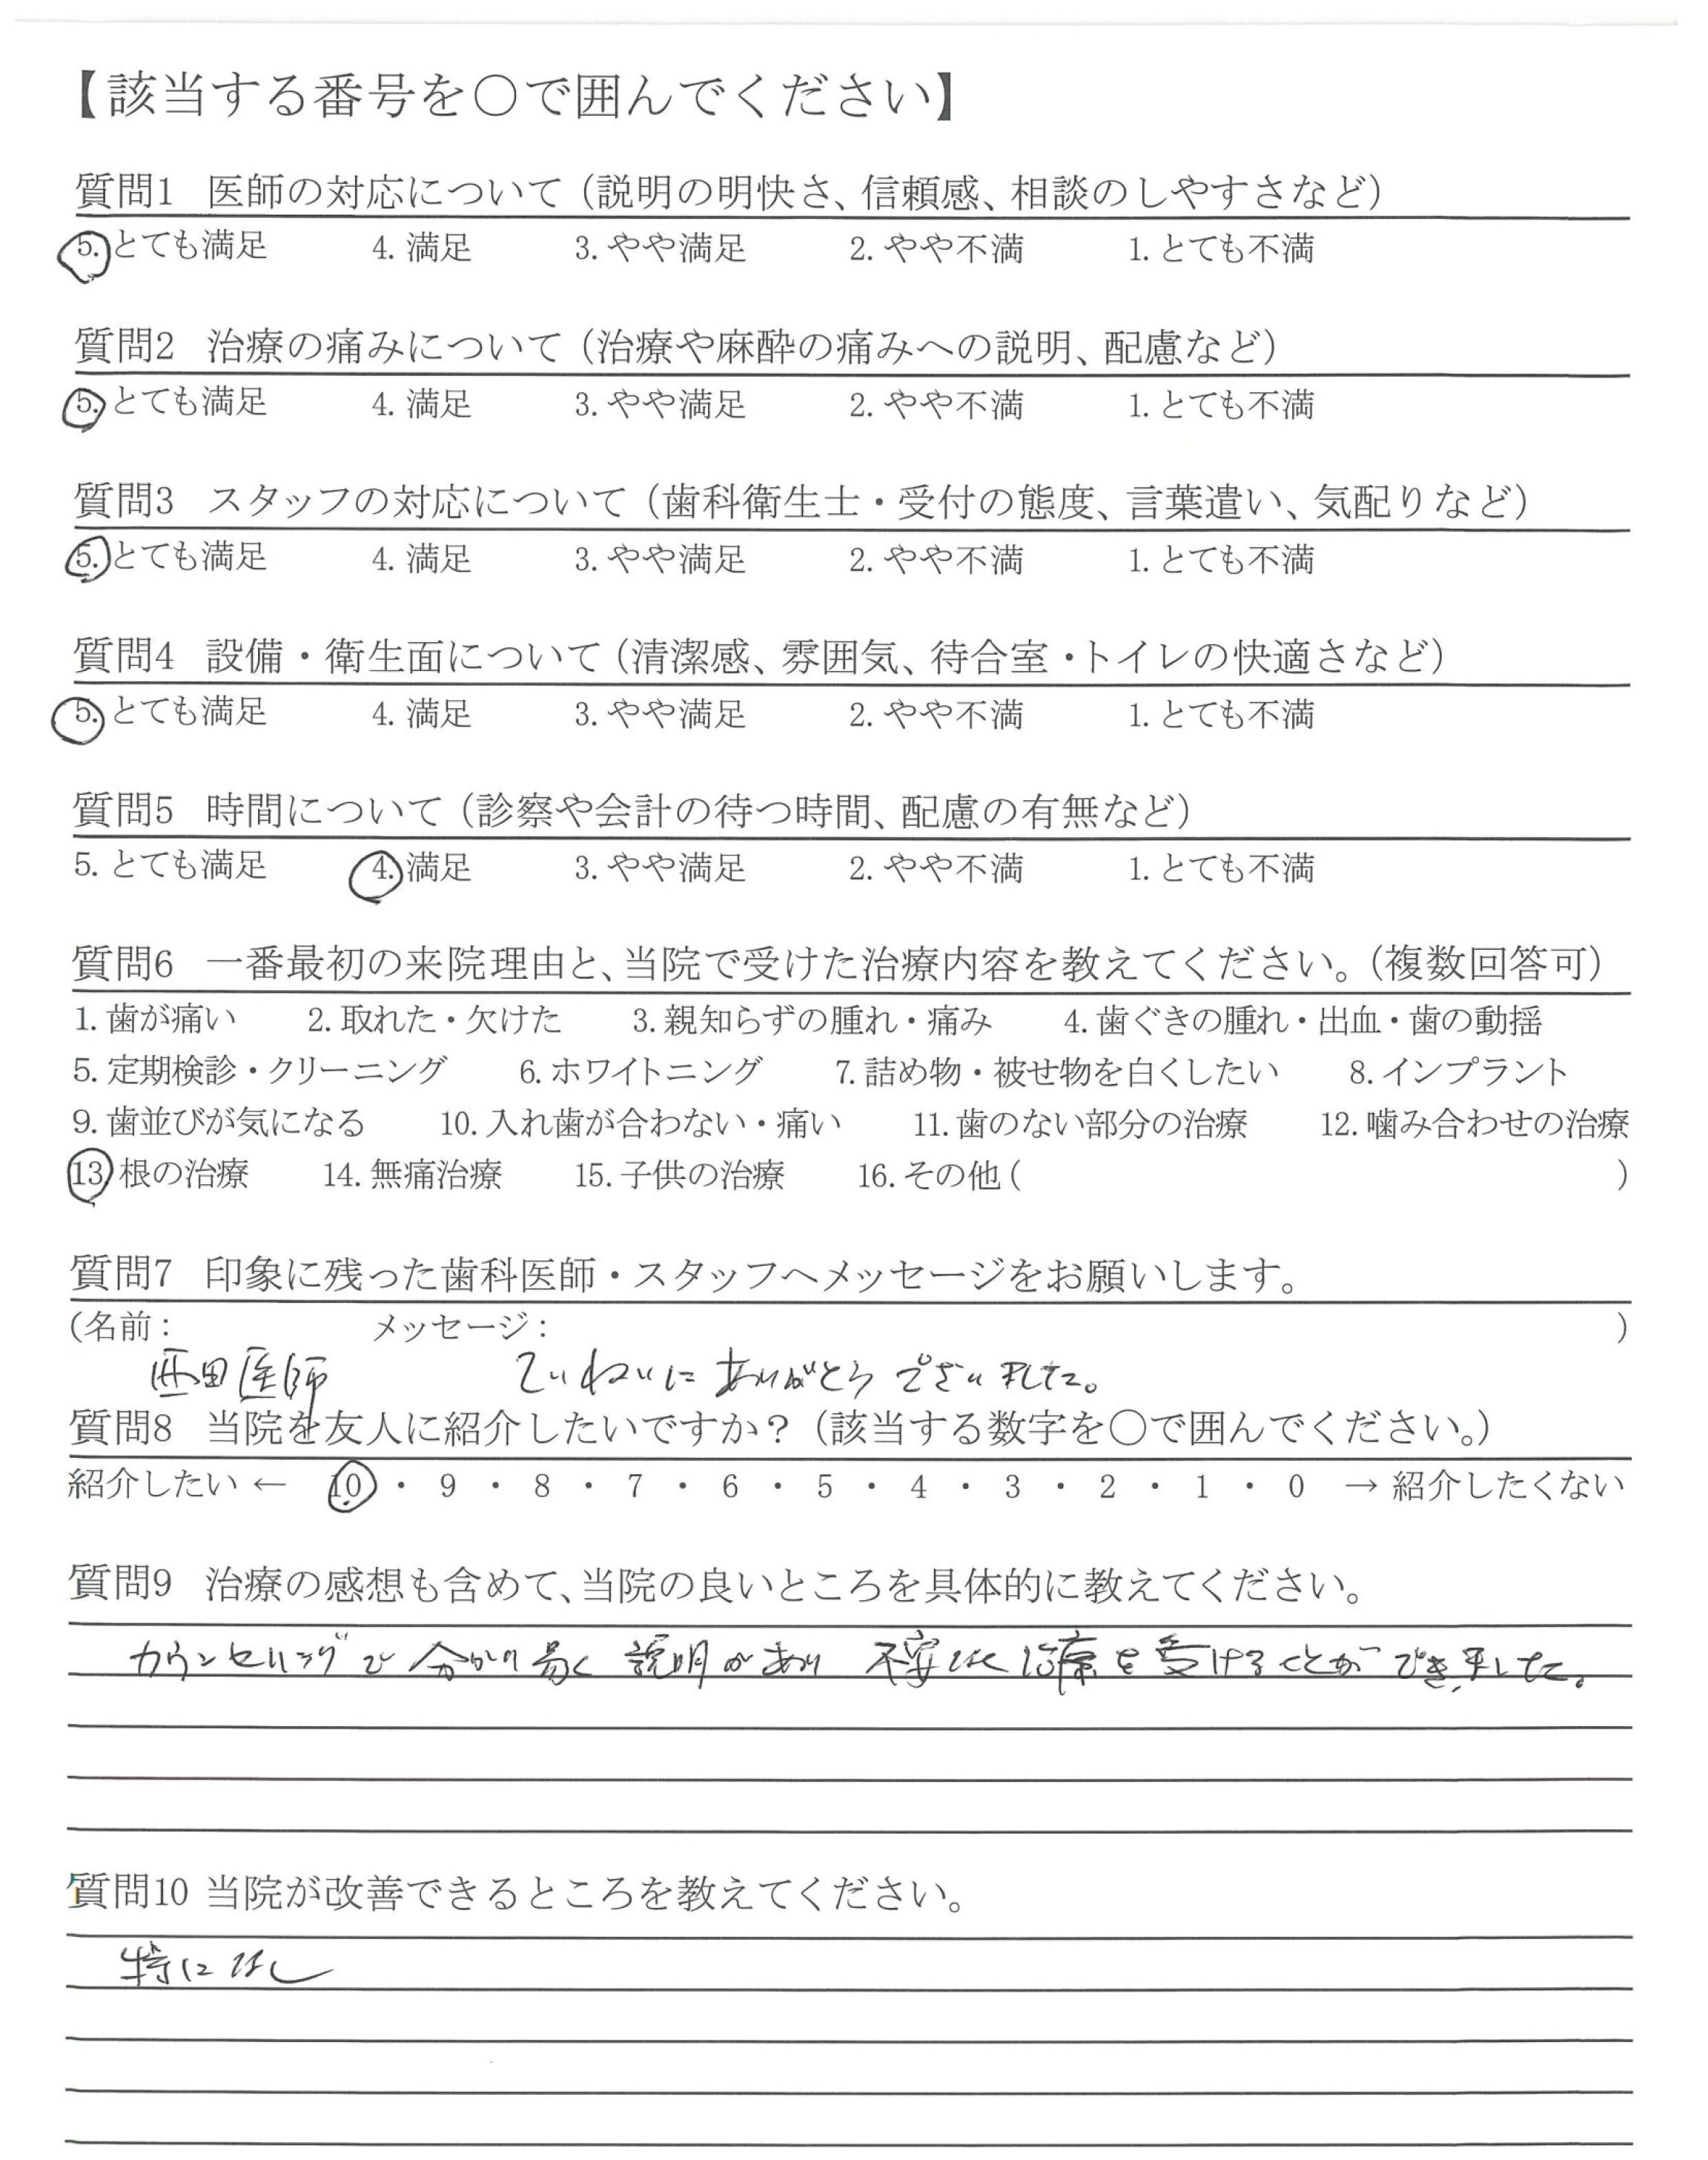 【該当する番号を○で囲んでください】
質問1 医師の対応について（説明の明快さ、信頼感、相談のしやすさなど）
5. とても満足 4. 満足 3. やや満足 2. やや不満 1. とても不満
質問2 治療の痛みについて（治療や麻酔の痛みへの説明、配慮など）
5. とても満足 4. 満足 3. やや満足 2. やや不満 1. とても不満
質問3 スタッフの対応について（歯科衛生士・受付の態度、言葉遣い、気配りなど）
5. とても満足 4. 満足 3. やや満足 2. やや不満 1. とても不満
質問4 設備・衛生面について（清潔感、雰囲気、待合室・トイレの快適さなど）
5. とても満足 4. 満足 3. やや満足 2. やや不満 1. とても不満
質問5 時間について（診察や会計の待つ時間、配慮の有無など）
5. とても満足 4. 満足 3. やや満足 2. やや不満 1. とても不満
質問6 一番最初の来院理由と、当院で受けた治療内容を教えてください。（複数回答可）
1. 歯が痛い 2. 取れた・欠けた 3. 親知らずの腫れ・痛み 4. 歯ぐきの腫れ・出血・歯の動揺
5. 定期検診・クリーニング 6. ホワイトニング 7. 詰め物・被せ物を白くしたい 8. インプラント
9. 歯並びが気になる 10. 入れ歯が合わない・痛い 11. 歯のない部分の治療 12. 噛み合わせの治療
13. 根の治療 14. 無痛治療 15. 子供の治療 16. その他（ ）
質問7 印象に残った歯科医師・スタッフへメッセージをお願いします。
（名前： メッセージ： ）
西田医師 ていねいに ありがとう ございました。
質問8 当院を友人に紹介したいですか？（該当する数字を○で囲んでください。）
紹介したい ← 10 ・ 9 ・ 8 ・ 7 ・ 6 ・ 5 ・ 4 ・ 3 ・ 2 ・ 1 ・ 0 → 紹介したくない
質問9 治療の感想も含めて、当院の良いところを具体的に教えてください。
カウンセリングで 分かり易く 説明があり 不安なく 治療を受けることができました。
質問10 当院が改善できるところを教えてください。
特になし